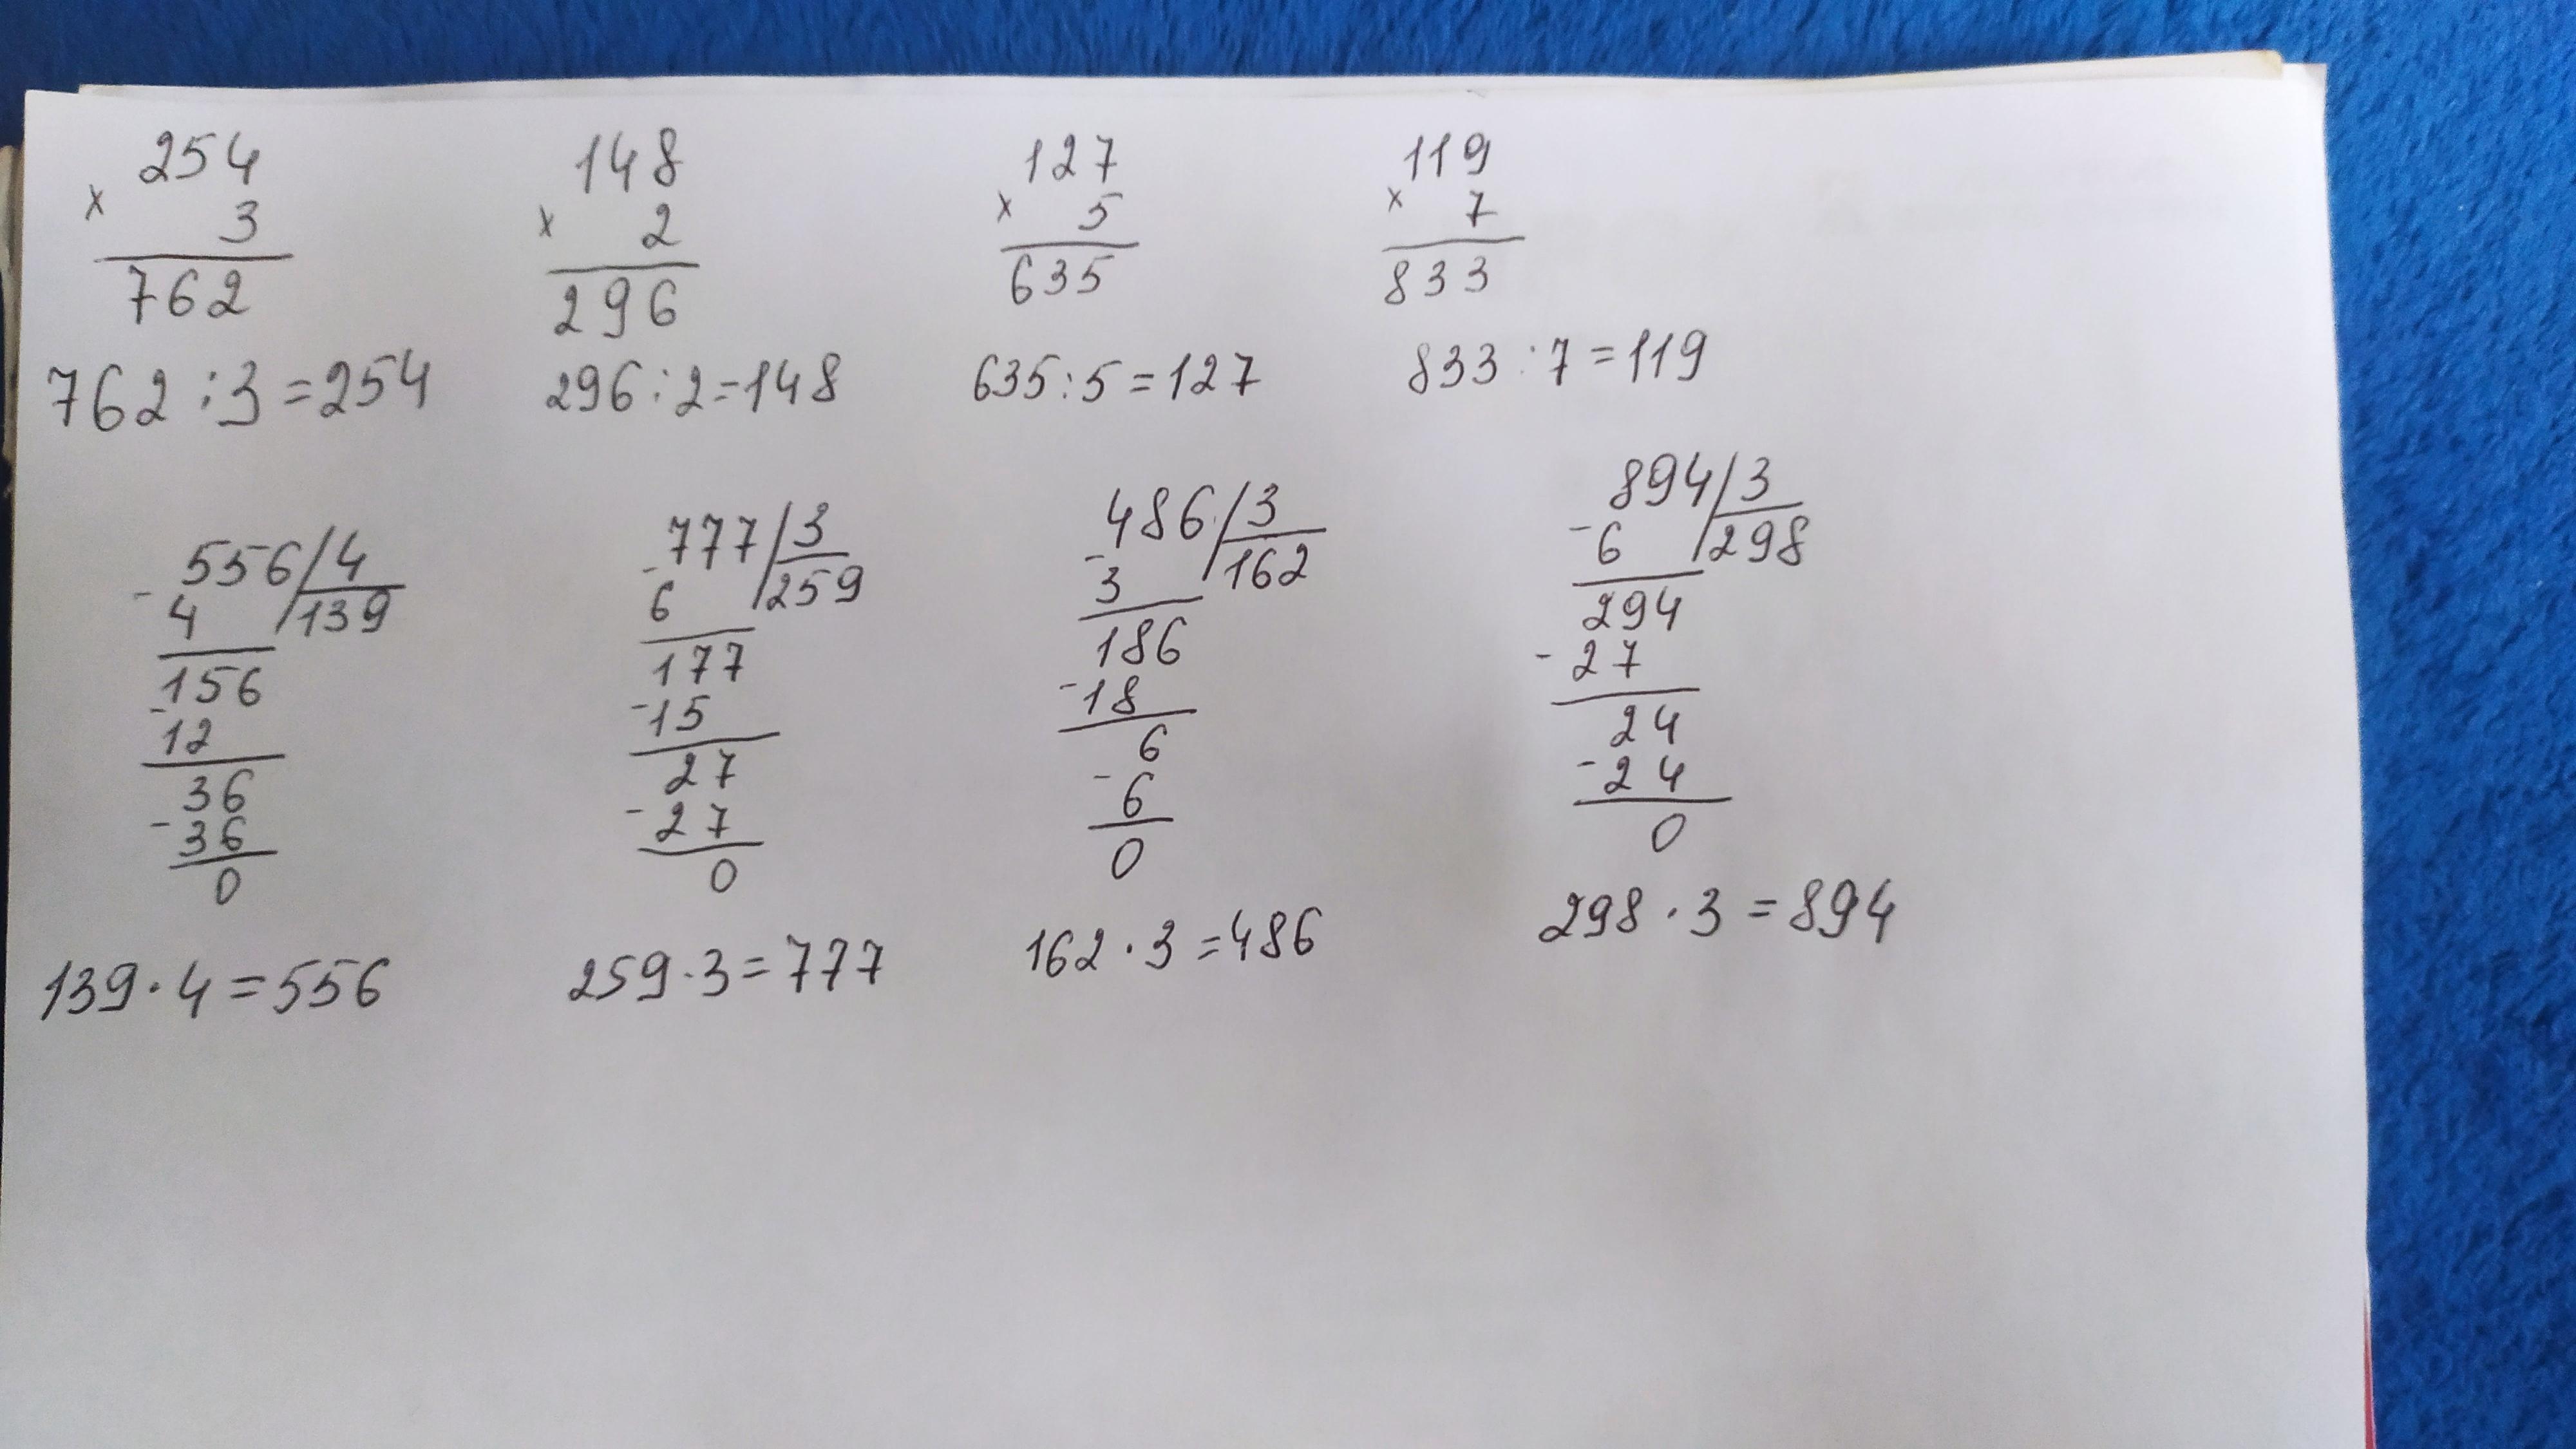 254
× 3
762
762 : 3 = 254
148
× 2
296
296 : 2 = 148
127
× 5
635
635 : 5 = 127
119
× 7
833
833 : 7 = 119
556 / 4
- 4 / 139
156
- 12
36
- 36
0
139 · 4 = 556
777 / 3
- 6 / 259
177
- 15
27
- 27
0
259 · 3 = 777
486 / 3
- 3 / 162
186
- 18
6
- 6
0
162 · 3 = 486
894 / 3
- 6 / 298
294
- 27
24
- 24
0
298 · 3 = 894